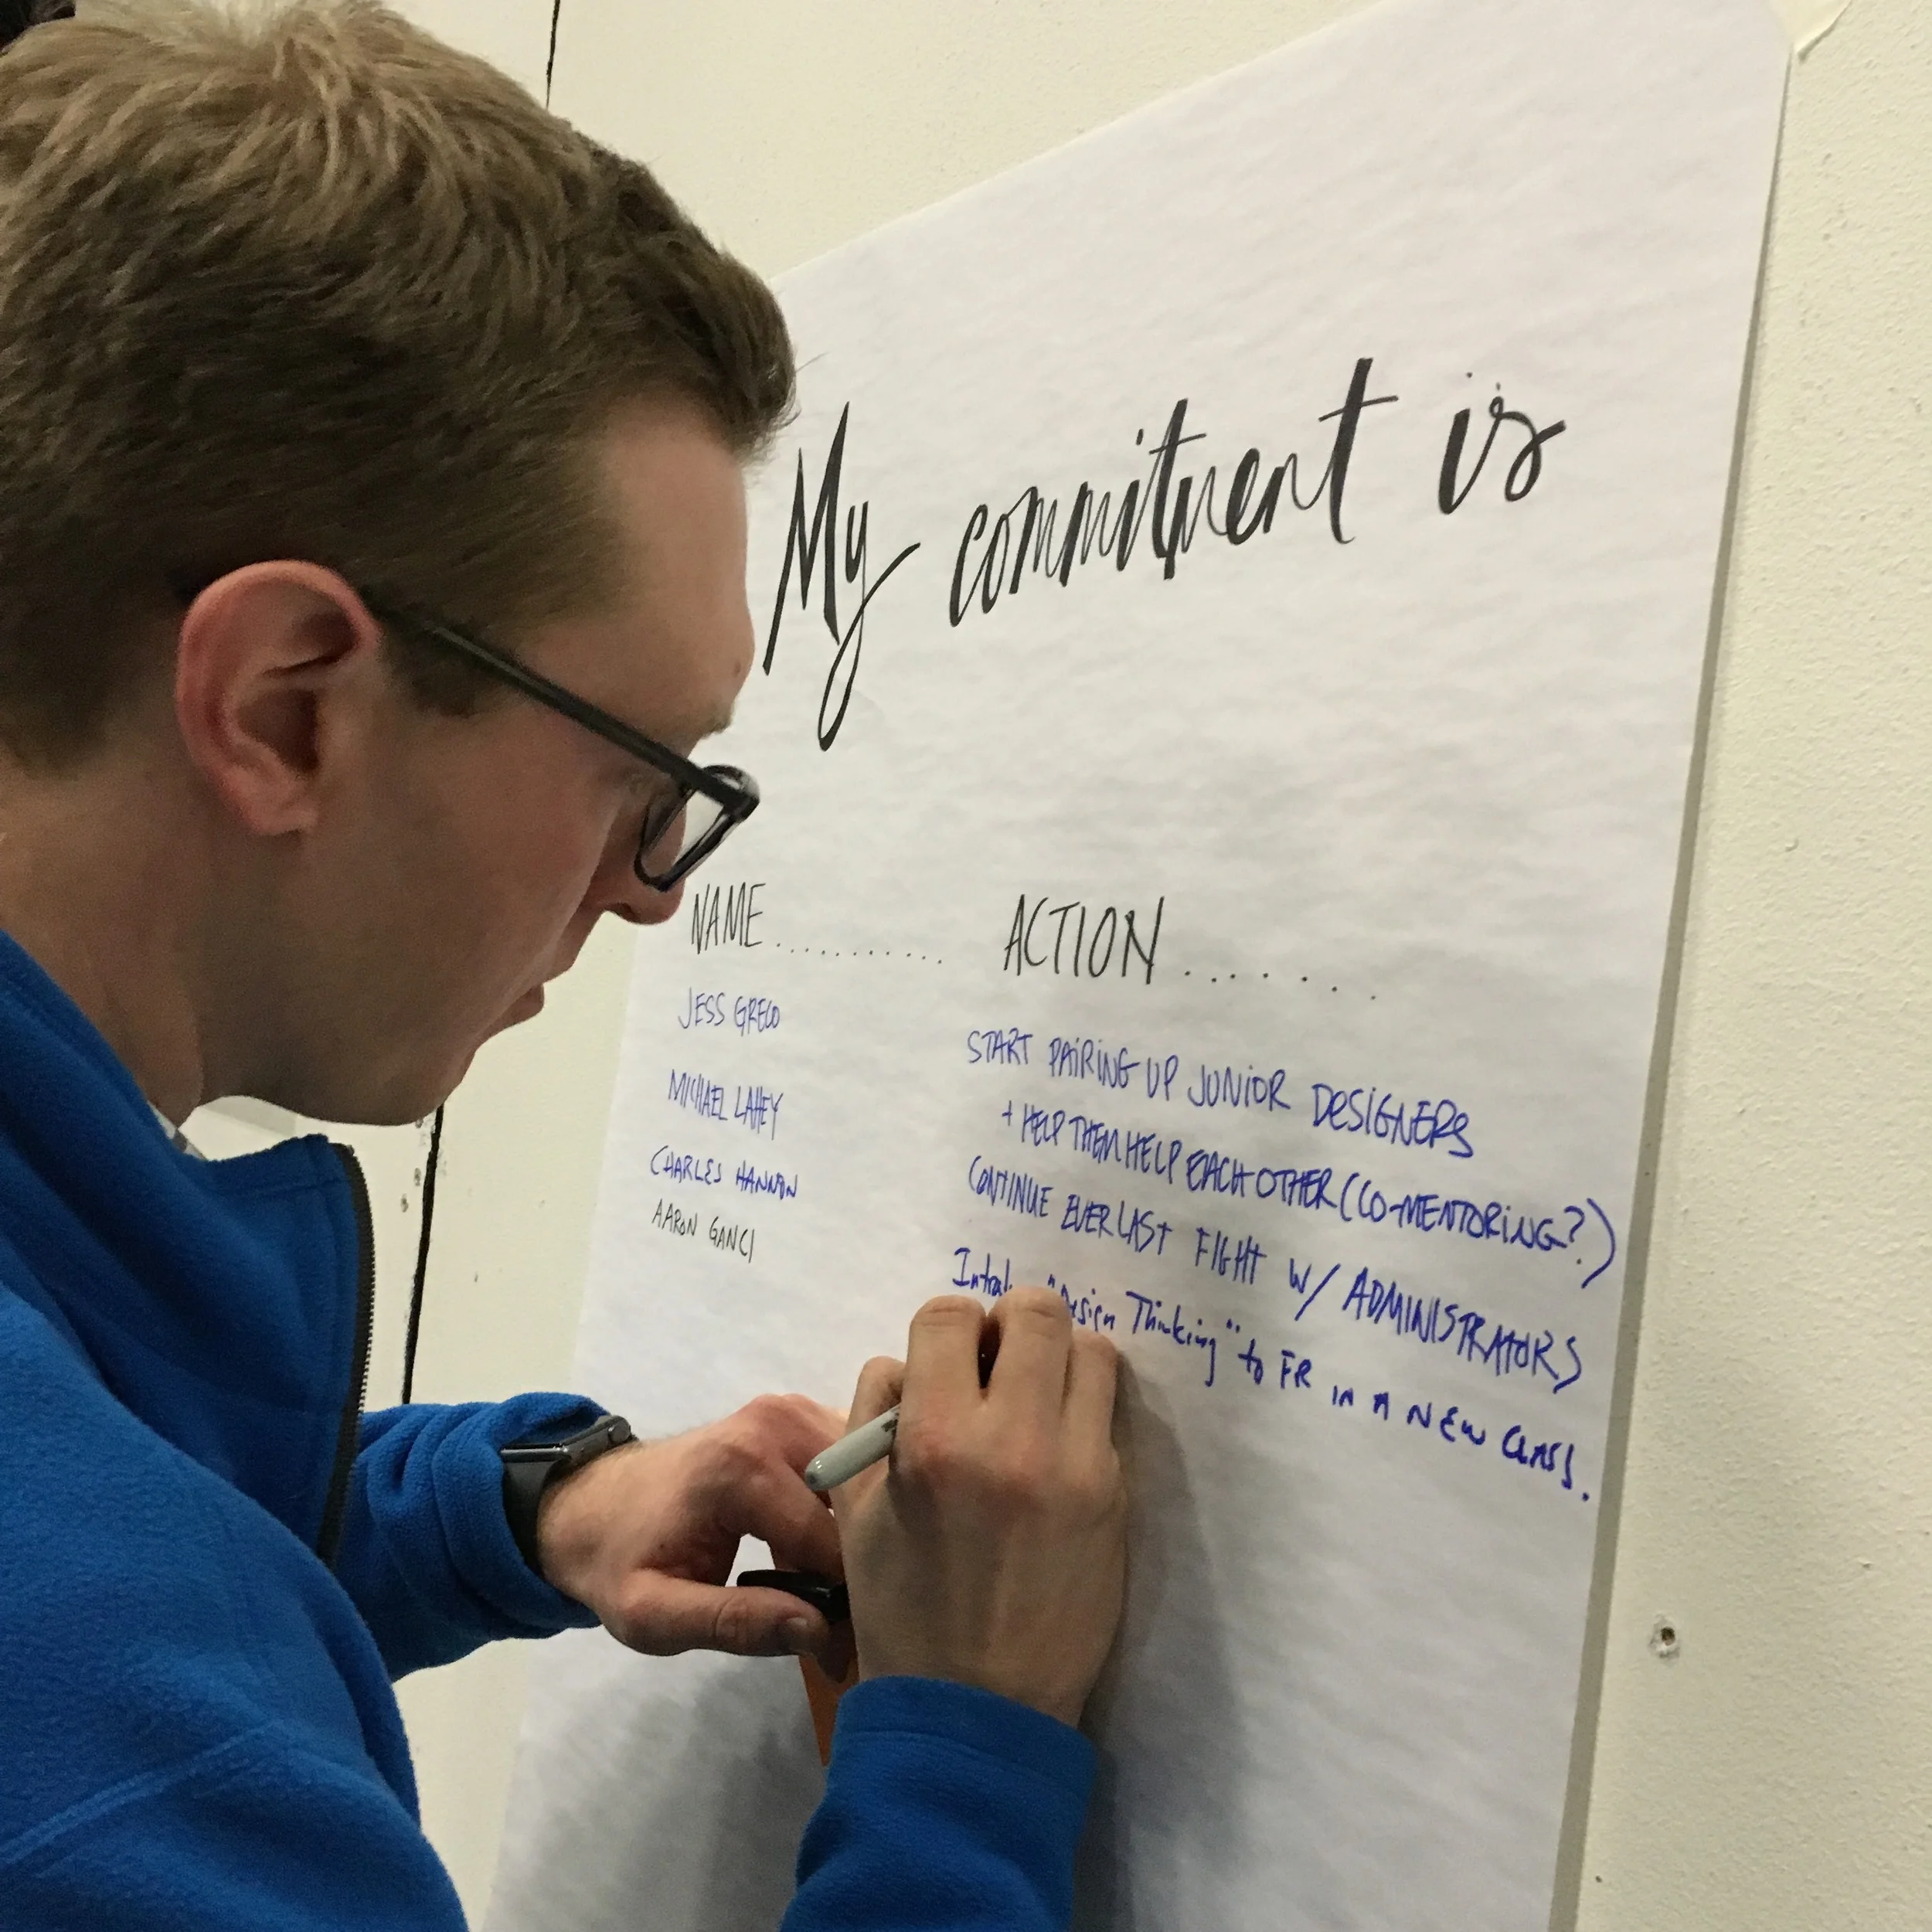 My commitment is
NAME........... ACTION.......
JESS GRECO START PAIRING UP JUNIOR DESIGNERS
+ HELP THEM HELP EACH OTHER (CO-MENTORING?)
MICHAEL LAHEY CONTINUE EVERLAST FIGHT W/ ADMINISTRATORS
CHARLES HANNON "Design Thinking" to FR IN A NEW CLASS.
AARON GANCI